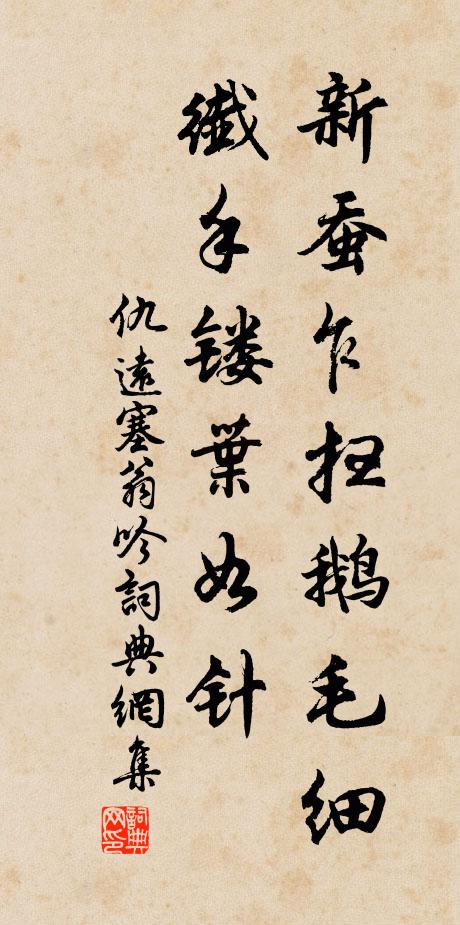 新蚕乍扫鵝毛细
纖手镂葉如针
仇遠塞翁吟詞典網集
詞典网印